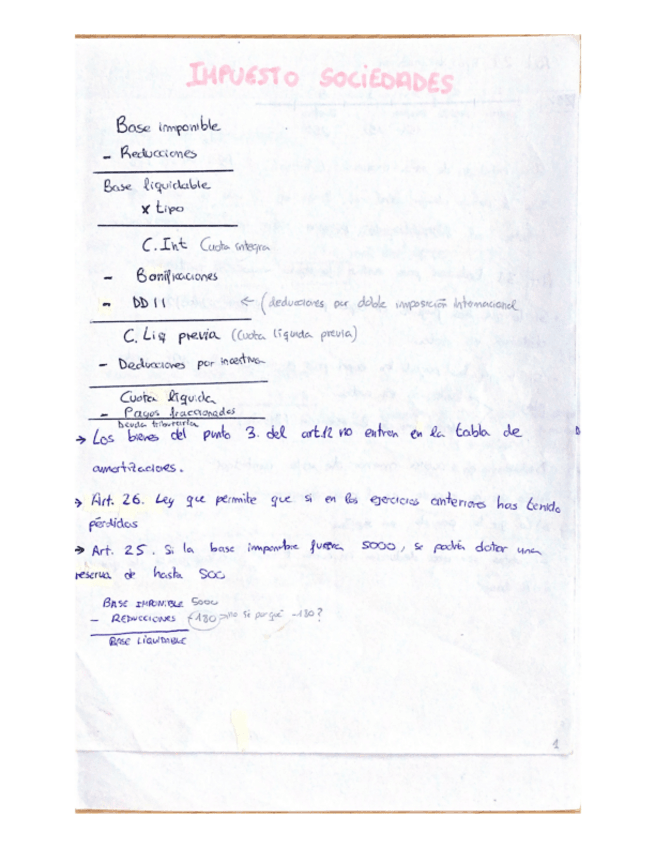 IMPUESTO SOCIEDADES
Base imponible
- Reducciones
Base liquidable
x tipo
C. Int Cuota integra
- Bonificaciones
- DD II ← (deducciones por doble imposición internacional
C. Liq previa (Cuota líquida previa)
- Deducciones por incentivos
Cuota líquida
- Pagos fraccionados
Deuda tributaria
→ Los bienes del punto 3. del art.12 no entren en la tabla de
amortizaciones.
→ Art. 26. Ley que permite que si en los ejercicios anteriores has tenido
pérdidas
→ Art. 25. Si la base imponible fuera 5000, se podría dotar una
reserva de hasta 500
BASE IMPONIBLE 5000
- REDUCCIONES -180 → no sé porqué -180?
BASE LIQUIDABLE
1